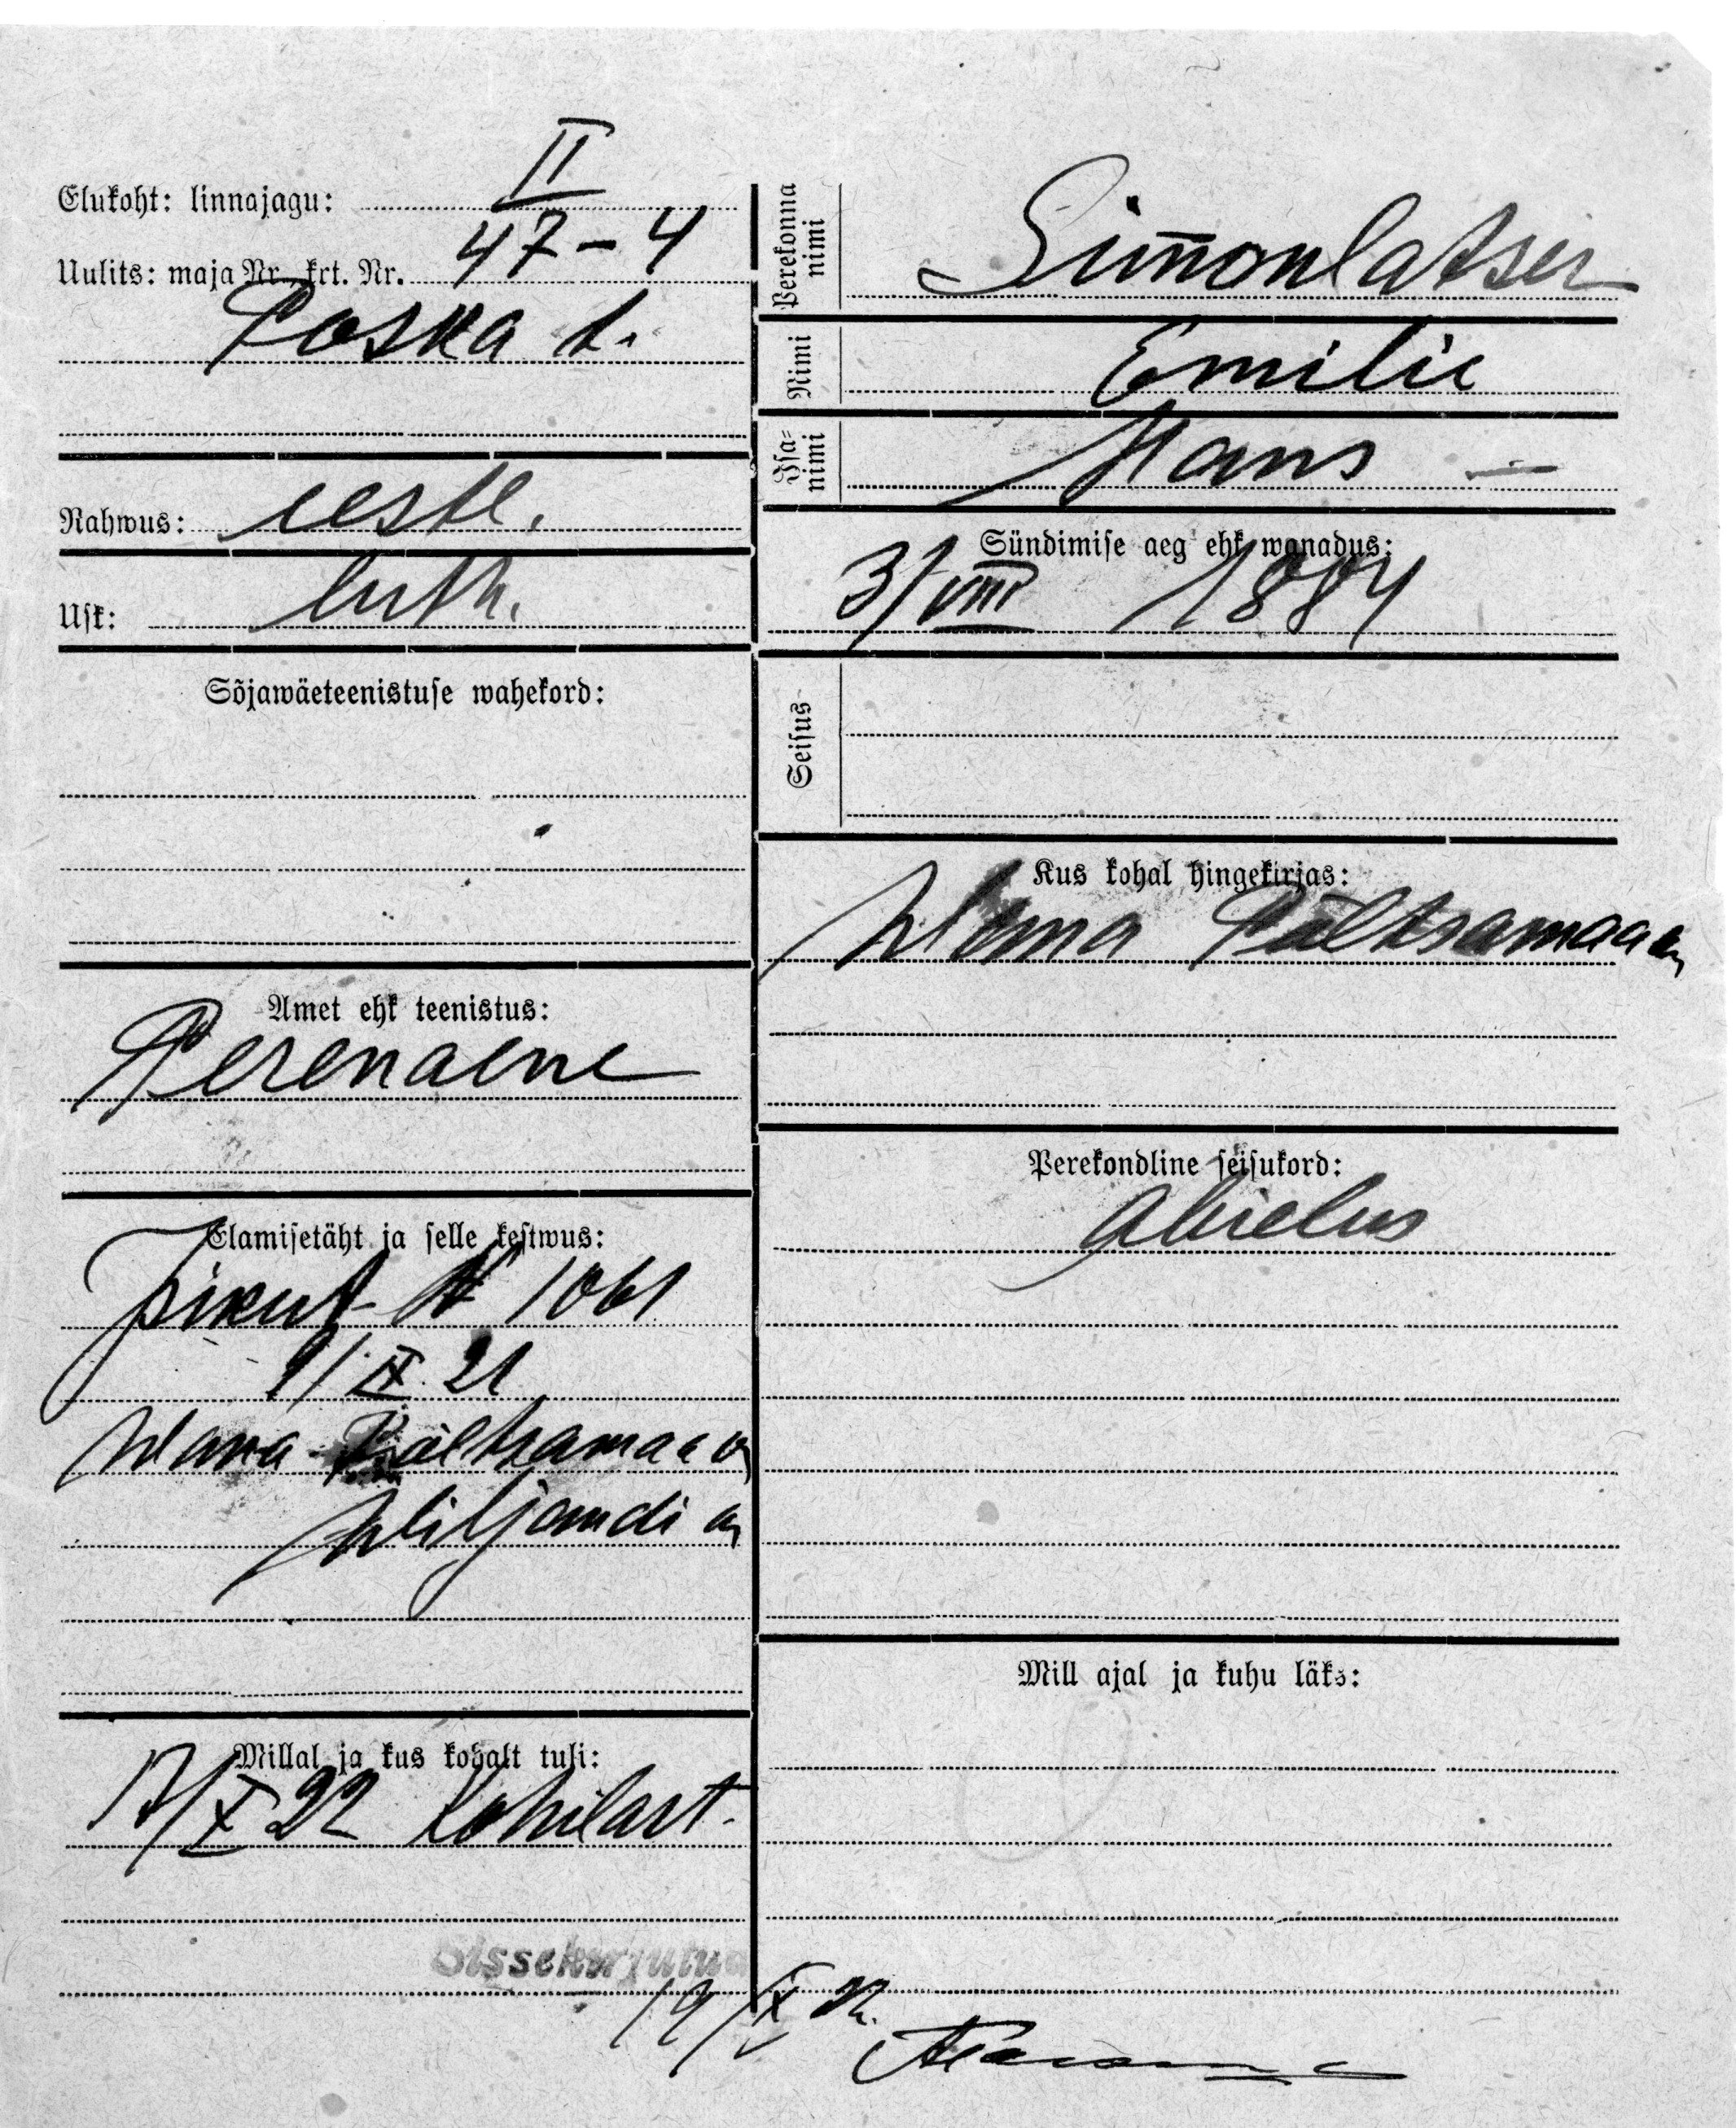 Elukoht: linnajagu: II
Uulits: maja Nr., krt. Nr. 47 – 4
Poska t.
Nahwus: eestl.
Usk: luth.
Sõjawäeteenistuse wahekord:
Amet ehk teenistus:
Perenaene
Elamisetäht ja selle kestwus:
Isikut № 1061
9/IX 21
Wana-Põltsamaa w
Wiljandi m
Millal ja kus kohalt tuli:
17/X 22 Kohilast.
Sissekirjutud
19/X 22.
Perekonna nimi
Simonlatser
Nimi
Emilie
Isa-nimi
Hans –
Sündimise aeg ehk wanadus:
3/VIII 1884
Seisus
Kus kohal hingekirjas:
Wana Põltsamaa w
Perekondline seisukord:
Abielus
Mill ajal ja kuhu läks: